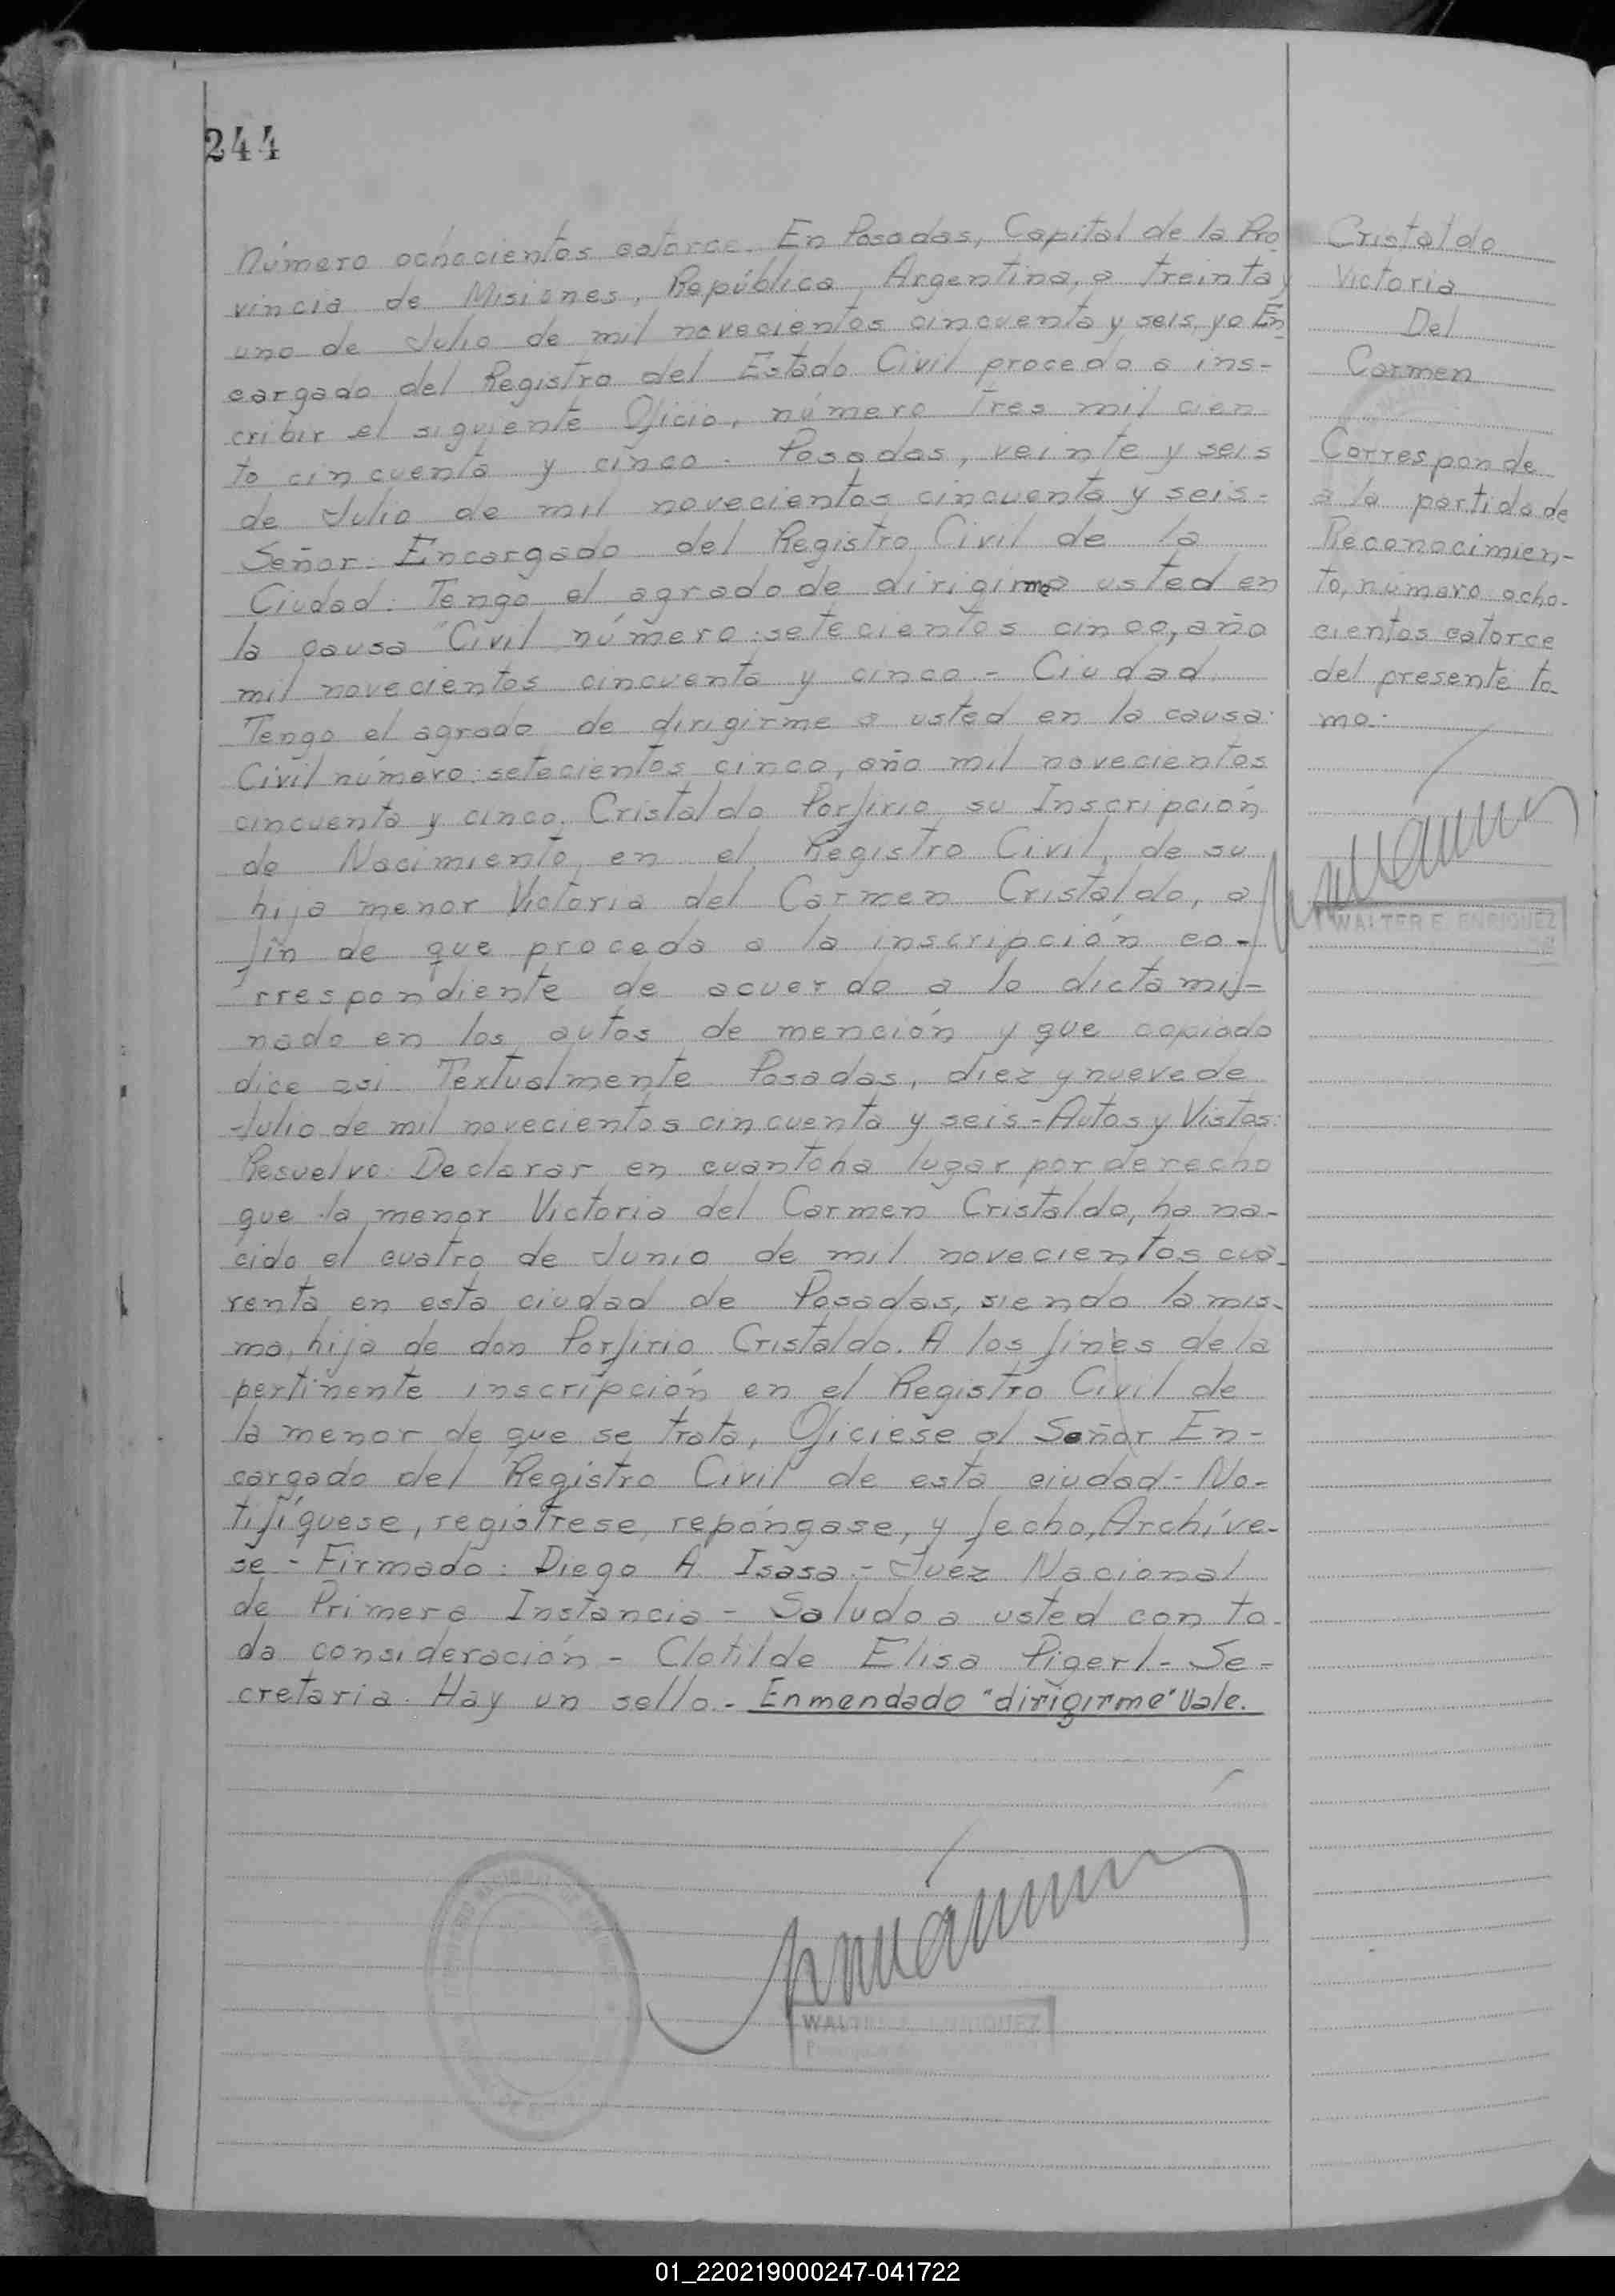 244
Número ochocientos catorce. En Posadas, Capital de la Pro-
vincia de Misiones, República Argentina, a treinta y
uno de Julio de mil novecientos cincuenta y seis, yo En-
cargado del Registro del Estado Civil procedo a ins-
cribir el siguiente Oficio, número tres mil cien
to cincuenta y cinco. Posadas, veinte y seis
de Julio de mil novecientos cincuenta y seis-
Señor Encargado del Registro Civil de la
Ciudad: Tengo el agrado de dirigirme usted en
la causa "Civil número: setecientos cinco, año
mil novecientos cincuenta y cinco.- Ciudad
Tengo el agrado de dirigirme a usted en la causa:
Civil número: setecientos cinco, año mil novecientos
cincuenta y cinco, Cristaldo Porfirio su Inscripción
de Nacimiento en el Registro Civil, de su
hija menor Victoria del Carmen Cristaldo, a
fin de que proceda a la inscripción co-
rrespondiente de acuerdo a lo dictami-
nado en los autos de mención y que copiado
dice asi Textualmente Posadas, diez y nueve de
Julio de mil novecientos cincuenta y seis-Autos y Vistos:
Resuelvo: Declarar en cuanto ha lugar por derecho
que la menor Victoria del Carmen Cristaldo, ha na-
cido el cuatro de Junio de mil novecientos cua-
renta en esta ciudad de Posadas, siendo la mis-
ma, hija de don Porfirio Cristaldo. A los fines de la
pertinente inscripción en el Registro Civil de
la menor de que se trata, Ofíciese al Señor En-
cargado del Registro Civil de esta ciudad- No-
tifíquese, regístrese, repóngase, y fecho, Archíve-
se - Firmado: Diego A. Isasa - Juez Nacional
de Primera Instancia - Saludo a usted con to-
da consideración - Clotilde Elisa Pigerl - Se-
cretaria. Hay un sello.- Enmendado "dirigirme" Vale.
WALTER E. ENRIQUEZ
Cristaldo
Victoria
Del
Carmen
Corresponde
a la partida de
Reconocimien-
to, número ocho-
cientos catorce
del presente to-
mo.-
WALTER E. ENRIQUEZ
01_220219000247-041722